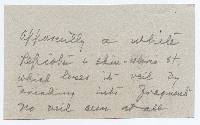 Apparently a white
Pellicle & skin-where st.
which loses its veil by
breaking into fragments
No veil seen at all